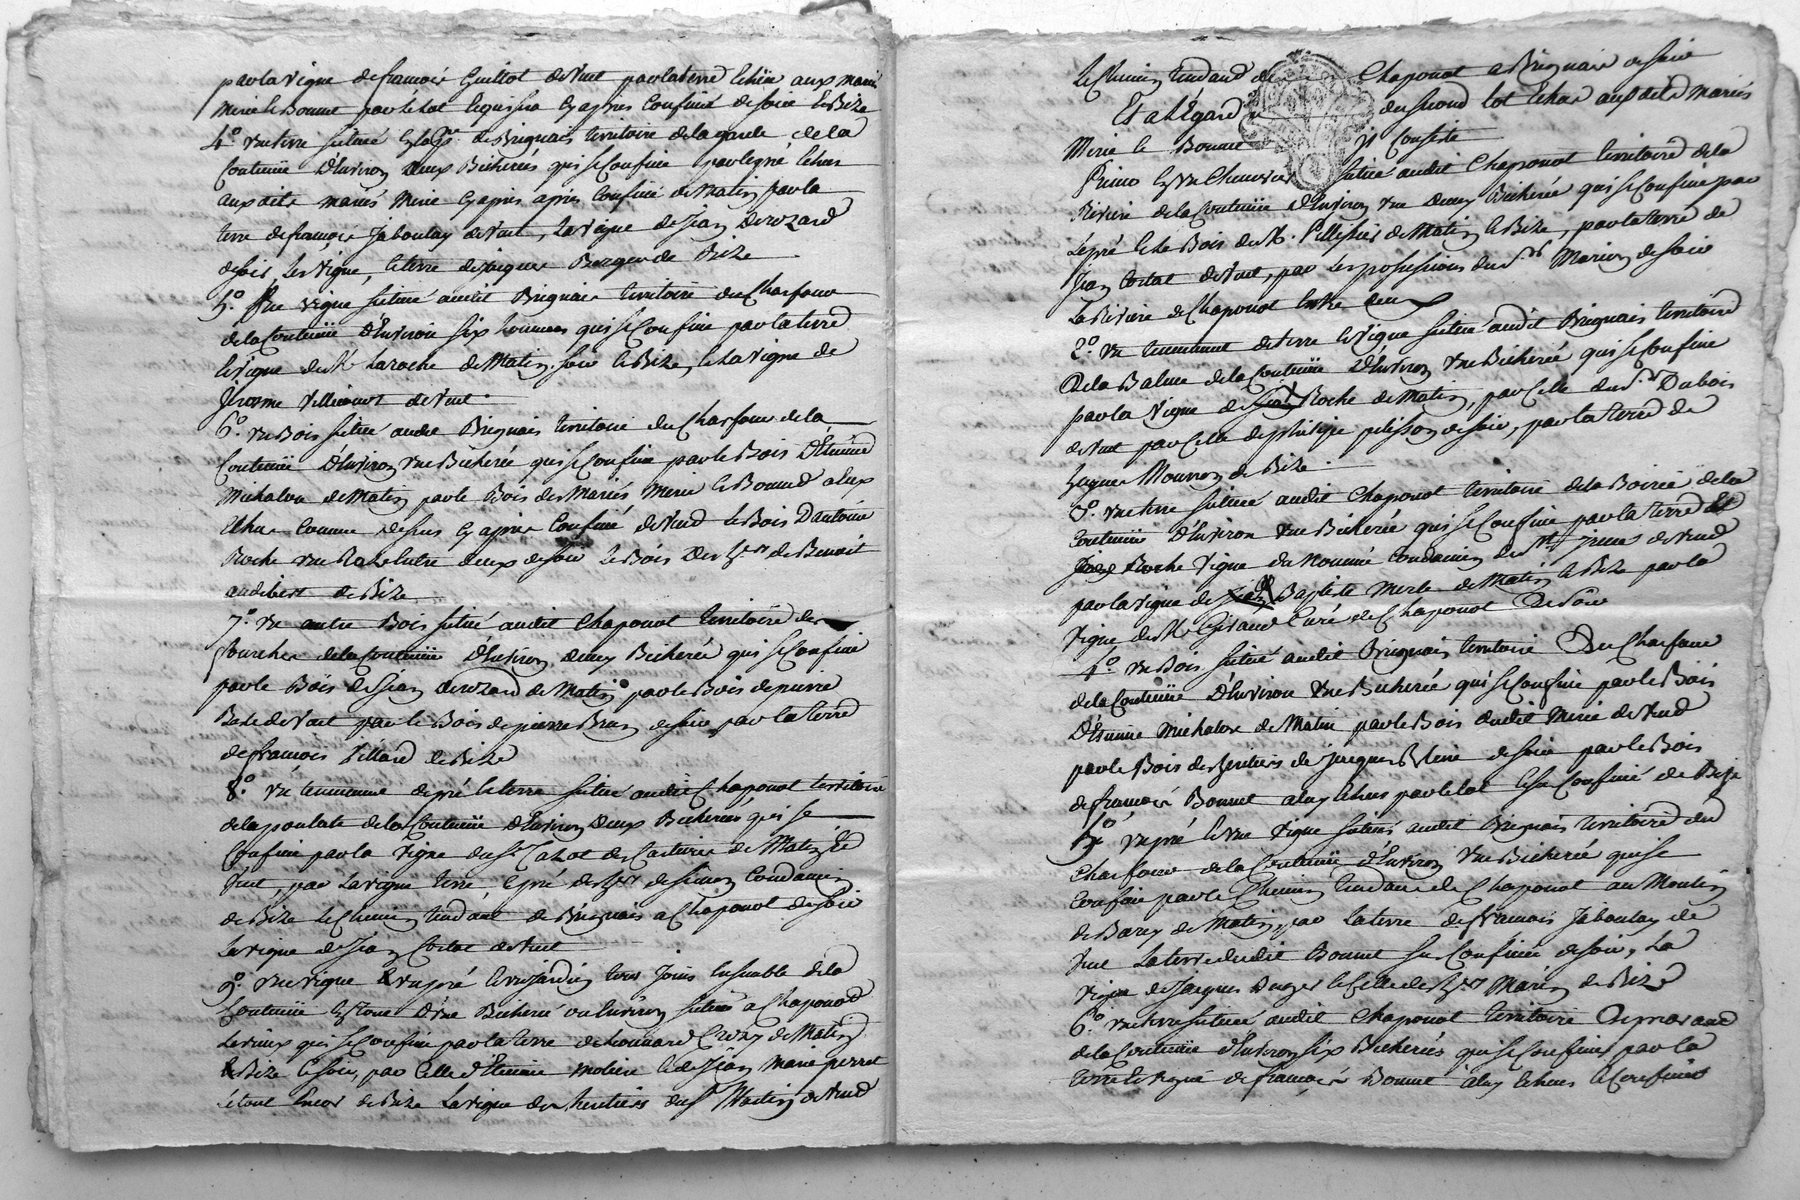 par la vigne de françois Guillot de vent par la terre Echüe aux mariés
Merie le Bonnet par le lot lequi sera Cy apres Confiné de soir & Bize
4.° une terre située de Brignais territoire de la garde de la
Contenüe D'Environ deux Bicherées qui se Confine par le pré Echu
auxdits mariés Merie Cy apres Confiné de Matin par la
terre de françois Jaboulay de vent, La vigne de Jean Derozard
de soir, Les vigne, & terre de Jaques Berger de Bize
5.° Une vigne située audit Brignais territoire du Charfour
de la Contenüe D'Environ six hommes qui se Confine par la terre
& vigne du Sr Laroche de Matin, soir & Bize, & la vigne de
Jérosme Villicourt de vent.
6.° un Bois situé audit Brignais territoire du Charfour de la
Contenüe D'Environ une Bicherée qui se Confine par le Bois D'Etienne
Michalon de Matin par le Bois des Mariés Merie & Bonnet a Eux
Echu Comme dessus Cy apres Confiné de vend le Bois D'antoine
Roche une Raze Entre deux de soir le Bois Des hers de Benoit
audibert de Bize
7.° un autre Bois situé audit Chaponot territoire de
fourche de la Contenüe D'Environ deux Bicherée qui se Confine
par le Bois de Jean derozard de Matin par le Bois de pierre
de vent par le Bois de pierre Brun de soir par la terre
de françois Villard de Bize
8.° un tennement de pré & terre située audit Chaponot territoire
de la poulate de la Contenüe D'Environ deux Bicherées qui se
Confine par la vigne du Sr Cazot des Cartures de Matin &
vent, par la vigne terre, & pré des hers de Simon Condamin
de Bize le Chemin tendant de Brignais a Chaponot de soir
La vigne de Jean Costat de vent
9.° une vigne & un pré & un jardin tous joins Ensemble de la
Contenüe D'une Bicherée ou Environ situés a Chaponot
qui se Confine par la terre de Leonard Crozy de Matin
& Bize & soir, par Celle d'Etienne Moliere & de Jean Marie perret
Encor de Bize La vigne des heritiers du Sr Martin de vend
Le Chemin tendand de Chaponot a Brignais de soir
Et a l'Egard du second lot Echue auxdits mariés
Merie & Bonnet il Consiste
Primo En un Chenevier située audit Chaponot territoire de la
Riviere de la Contenüe d'Environ une demy Bicherée qui se Confine par
Le pré & le Bois du Sr. Pellissier de Matin & Bize, par la terre de
Jean Costat de vent, par les possessions du Sr Marion de soir
La Riviere de Chaponot Entre deux
2.° un tennement de terre & vigne située audit Brignais territoire
De la Balme de la Contenüe D'Environ une Bicherée qui se Confine
par la vigne de Roche de Matin, par Celle du Sr. Dubois
de vent par Celle de philipe pelisson de soir, par la terre de
Jaques Mouron de Bize.
3.° une terre située audit Chaponot territoire de la Boirie de la
Contenüe D'Environ une Bicherée qui se Confine par la terre de
Roche vigne du Nommé Condamin du St. Irené de vend
par la vigne de Baptiste Merle de Matin & Bize par la
vigne du Sr Giraud Curé de Chaponot De soir
4.° un Bois situé audit Brignais territoire Du Charfour
de la Contenüe D'Environ une Bicherée qui se Confine par le Bois
D'Etienne Michalon de Matin par le Bois dudit Merie de vend
par le Bois des heritiers de Jacques de soir par le Bois
de françois Bonnet a luy Echus par le lot & Confiné de Bize
5.° un pré & une vigne situés audit Brignais territoire du
Charfour de la Contenüe d'Environ une Bicherée qui se
Confine par le Chemin tendant de Chaponot au Moulin
de Barny de Matin, par la terre de françois Jaboulay de
vent La terre dudit Bonnet sus Confinée de soir, La
vigne de Jacques Auger & Celle des hers Marion de Bize
6.° une terre située audit Chaponot territoire De morand
de la Contenüe d'Environ six Bicherées qui se Confine par la
terre & vigne de françois Bonnet a luy Echus & Confinée